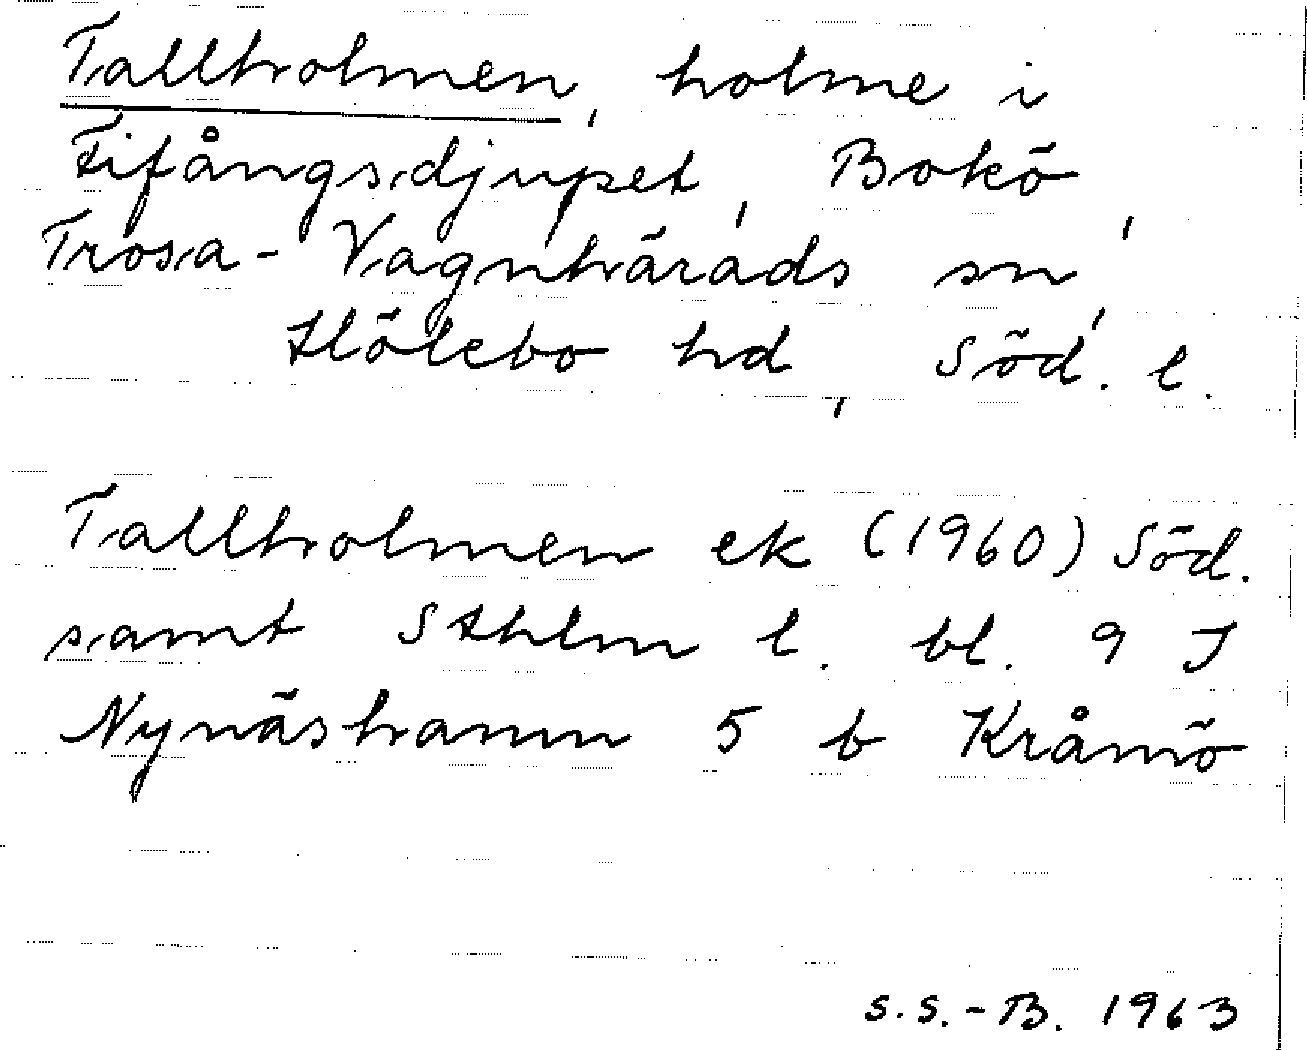 Tallholmen, holme i
Fifångsdjupet, Bokö,
Trosa-Vagnhärads sn,
Hölebo hd, Söd. l.
Tallholmen ek (1960) Söd.
samt Sthlm l. bl. 9 I
Nynäshamn 5 b Kråmö
S.S.-B. 1963